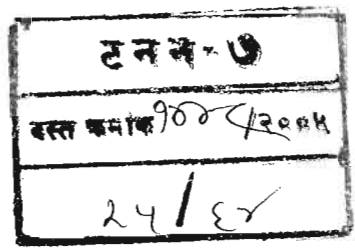 ट न न - ७
दस्त क्रमांक १७४८/२००५
२५ / ६४